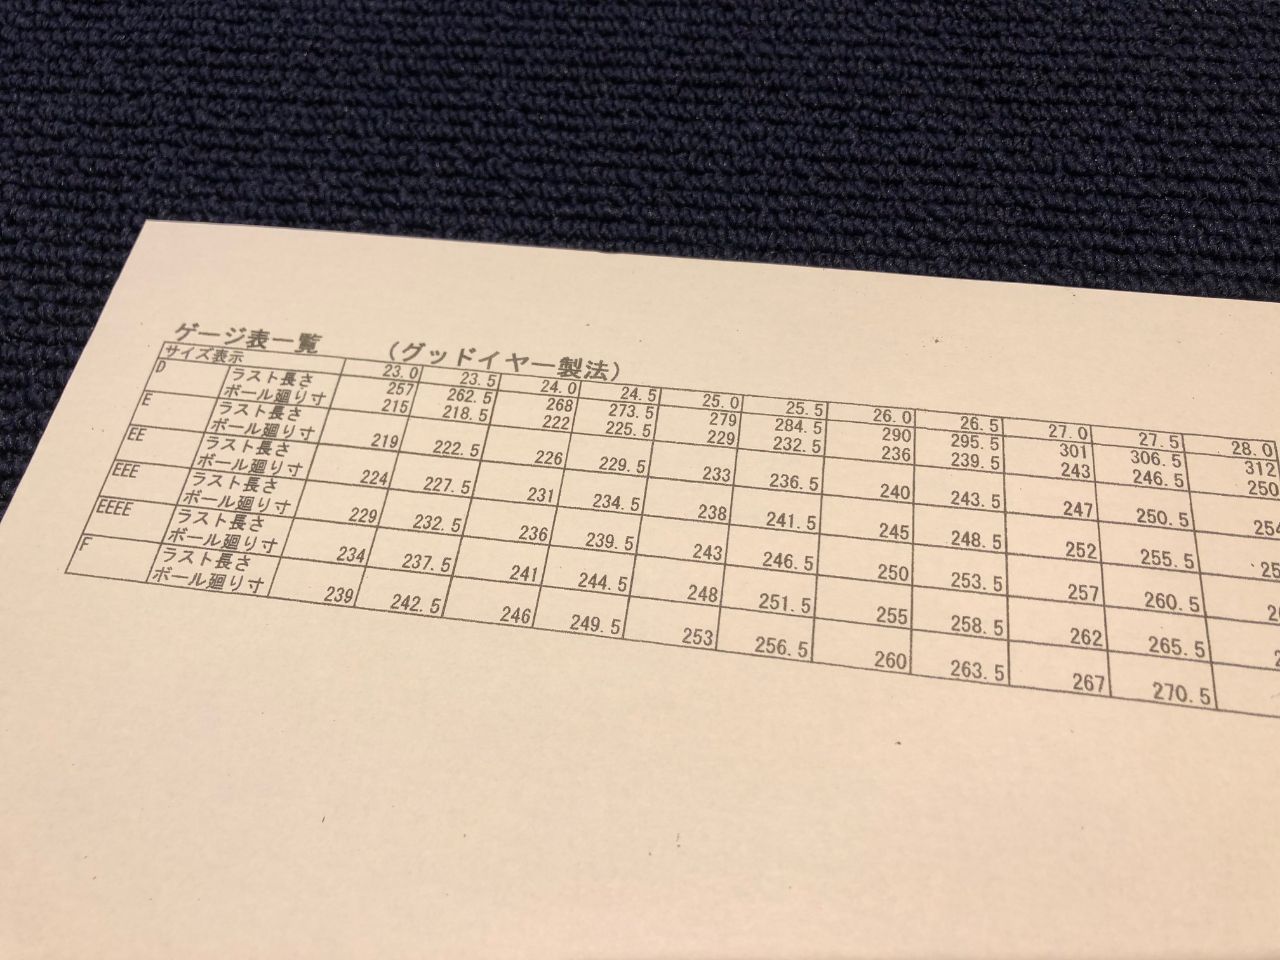 ゲージ表一覧 （グッドイヤー製法）
サイズ表示 23.0 23.5 24.0 24.5 25.0 25.5 26.0 26.5 27.0 27.5 28.0
D ラスト長さ 257 262.5 268 273.5 279 284.5 290 295.5 301 306.5 312
ボール廻り寸 215 218.5 222 225.5 229 232.5 236 239.5 243 246.5 250
E ラスト長さ
ボール廻り寸 219 222.5 226 229.5 233 236.5 240 243.5 247 250.5 254
EE ラスト長さ
ボール廻り寸 224 227.5 231 234.5 238 241.5 245 248.5 252 255.5
EEE ラスト長さ
ボール廻り寸 229 232.5 236 239.5 243 246.5 250 253.5 257 260.5
EEEE ラスト長さ
ボール廻り寸 234 237.5 241 244.5 248 251.5 255 258.5 262 265.5
F ラスト長さ
ボール廻り寸 239 242.5 246 249.5 253 256.5 260 263.5 267 270.5